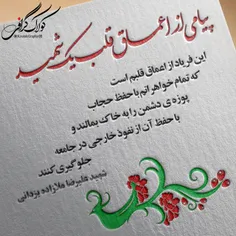 کوک گرافی
پیامی از اعماق قلب یک شهید
این فریاد از اعماق قلبم است
که تمام خواهرانم با حفظ حجاب
پوزه ی دشمن را به خاک بمالند و
با حفظ آن از نفوذ خارجی در جامعه
جلوگیری کنند
شهید علیرضا ملازاده یزدانی